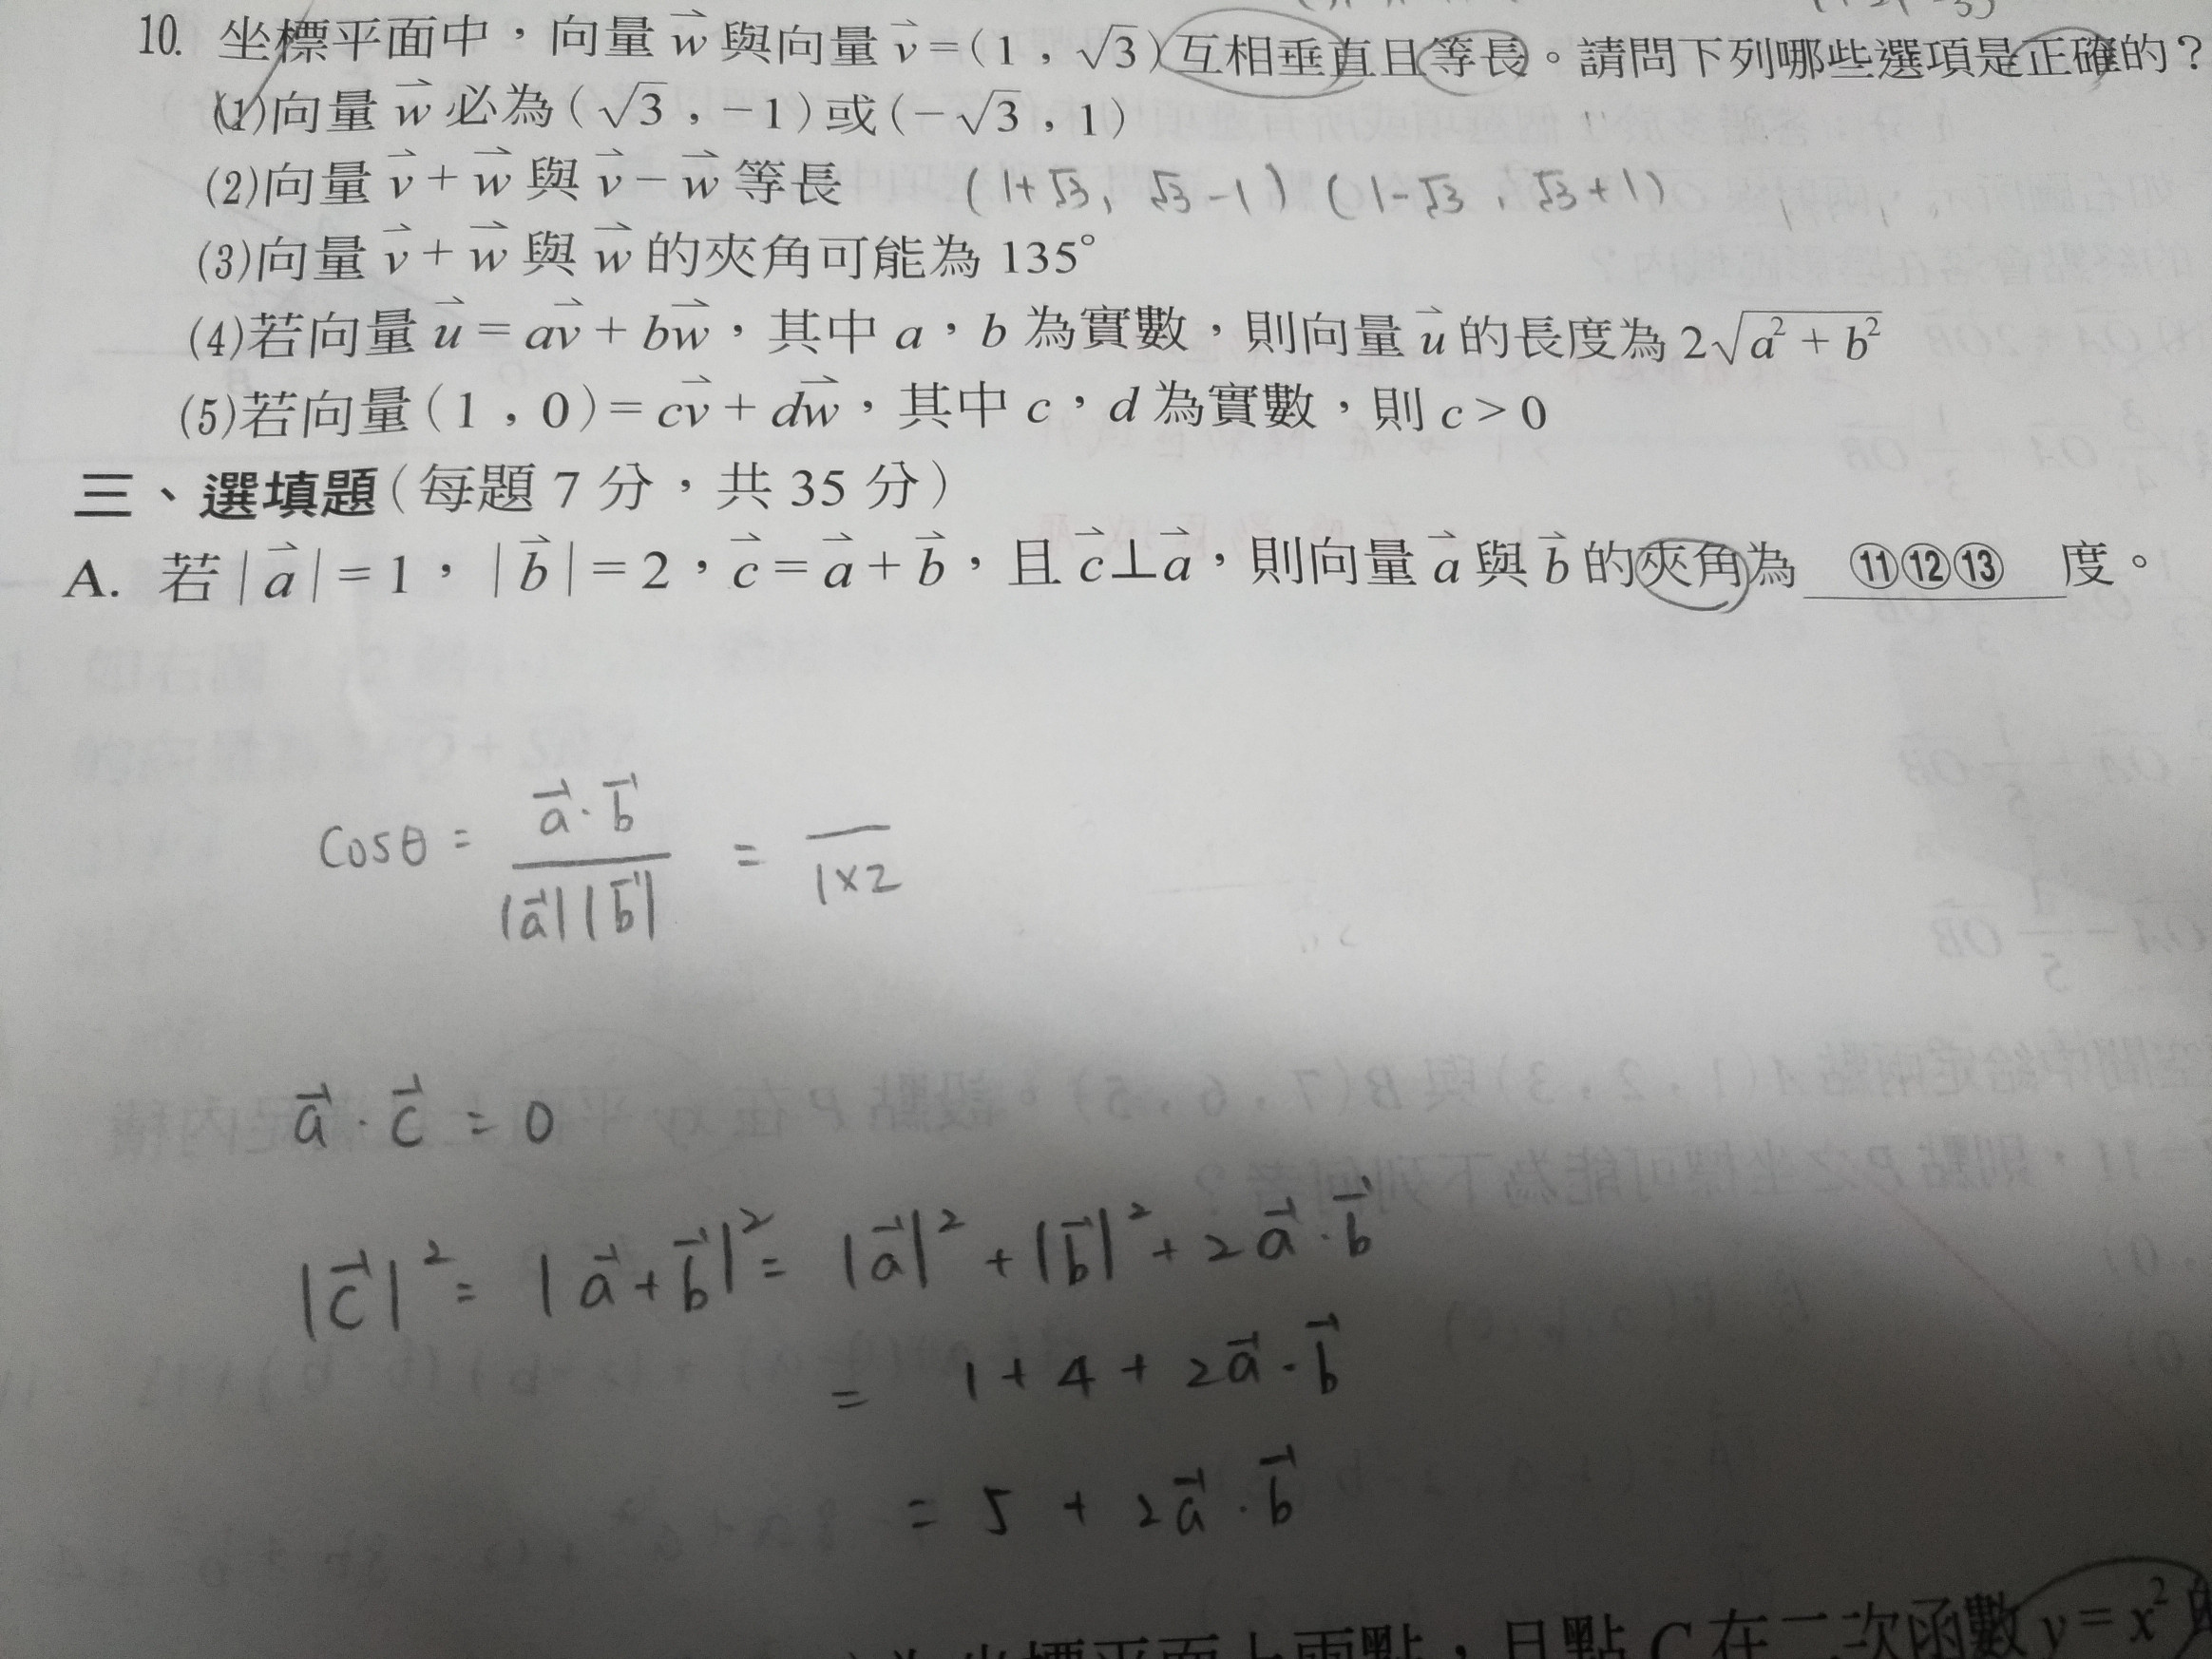 10. 坐標平面中，向量 w 與向量 v=(1，√3)互相垂直且等長。請問下列哪些選項是正確的？
(1)向量 w 必為(√3，-1)或(-√3，1)
(2)向量 v+w 與 v-w 等長 (1+√3, √3-1) (1-√3, √3+1)
(3)向量 v+w 與 w 的夾角可能為 135°
(4)若向量 u=av+bw，其中 a，b 為實數，則向量 u 的長度為 2√(a²+b²)
(5)若向量(1，0)=cv+dw，其中 c，d 為實數，則 c>0
三、選填題(每題 7 分，共 35 分)
A. 若|a|=1，|b|=2，c=a+b，且 c⊥a，則向量 a 與 b 的夾角為 ⑪⑫⑬ 度。
cosθ = a·b / |a||b| = / 1×2
a·c = 0
|c|² = |a+b|² = |a|² + |b|² + 2a·b
= 1 + 4 + 2a·b
= 5 + 2a·b
坐標平面上兩點，且點 C 在二次函數 y=x² 的